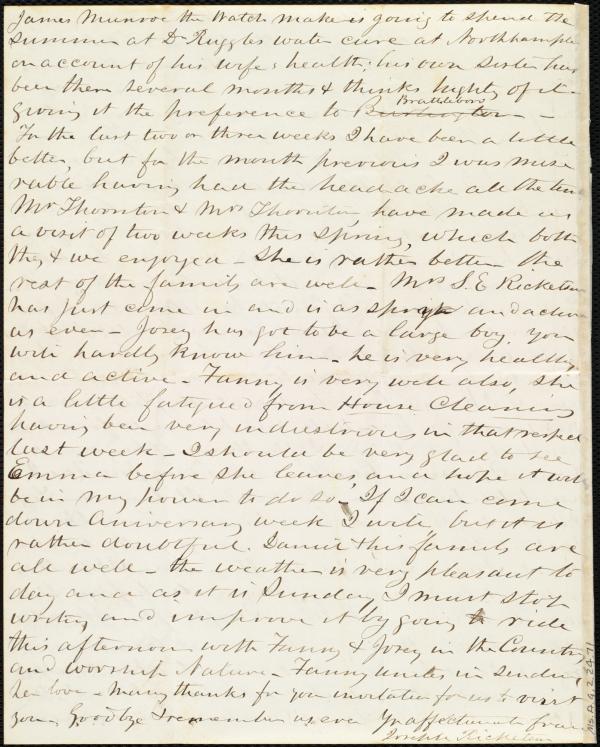 James Munroe the Watch make is going to spend the
summer at Dr Ruggles water cure at Northhampton
on account of his wife's health; his own sister has
been there several months & thinks highly of it
giving it the preference to Burlington Brattleboro —
For the last two or three weeks I have been a little
better, but for the month previous I was mise
rable having had the headache all the time
Mr Thornton & Mrs Thornton, have made us
a visit of two weeks this spring, which both
they & we enjoyed — She is rather better — the
rest of the family are well — Mrs S. E Ricketson
has just come in and is as spry and active
as ever — Josey has got to be a large boy, you
will hardly know him — he is very healthy
and active — Fanny is very well also, She
is a little fatigued from House Cleaning
having been very industrious in that respect
last week — I should be very glad to see
Emma before she leaves, and hope it will
be in my power to do so — If I can come
down Aniversary week I will, but it is
rather doubtful. Daniel & his family are
all well — the weather is very pleasant to
day and as it is Sunday I must stop
writing and improve it by going to ride
this afternoon with Fanny & Josey in the Country
and worship Nature — Fanny unites in sending
her love — Many thanks for your invitation for us to visit
you — Goodbye & remember us ever Yr affectionate friend
Joseph Ricketson
Ms. A. 9. 2. 24. 71